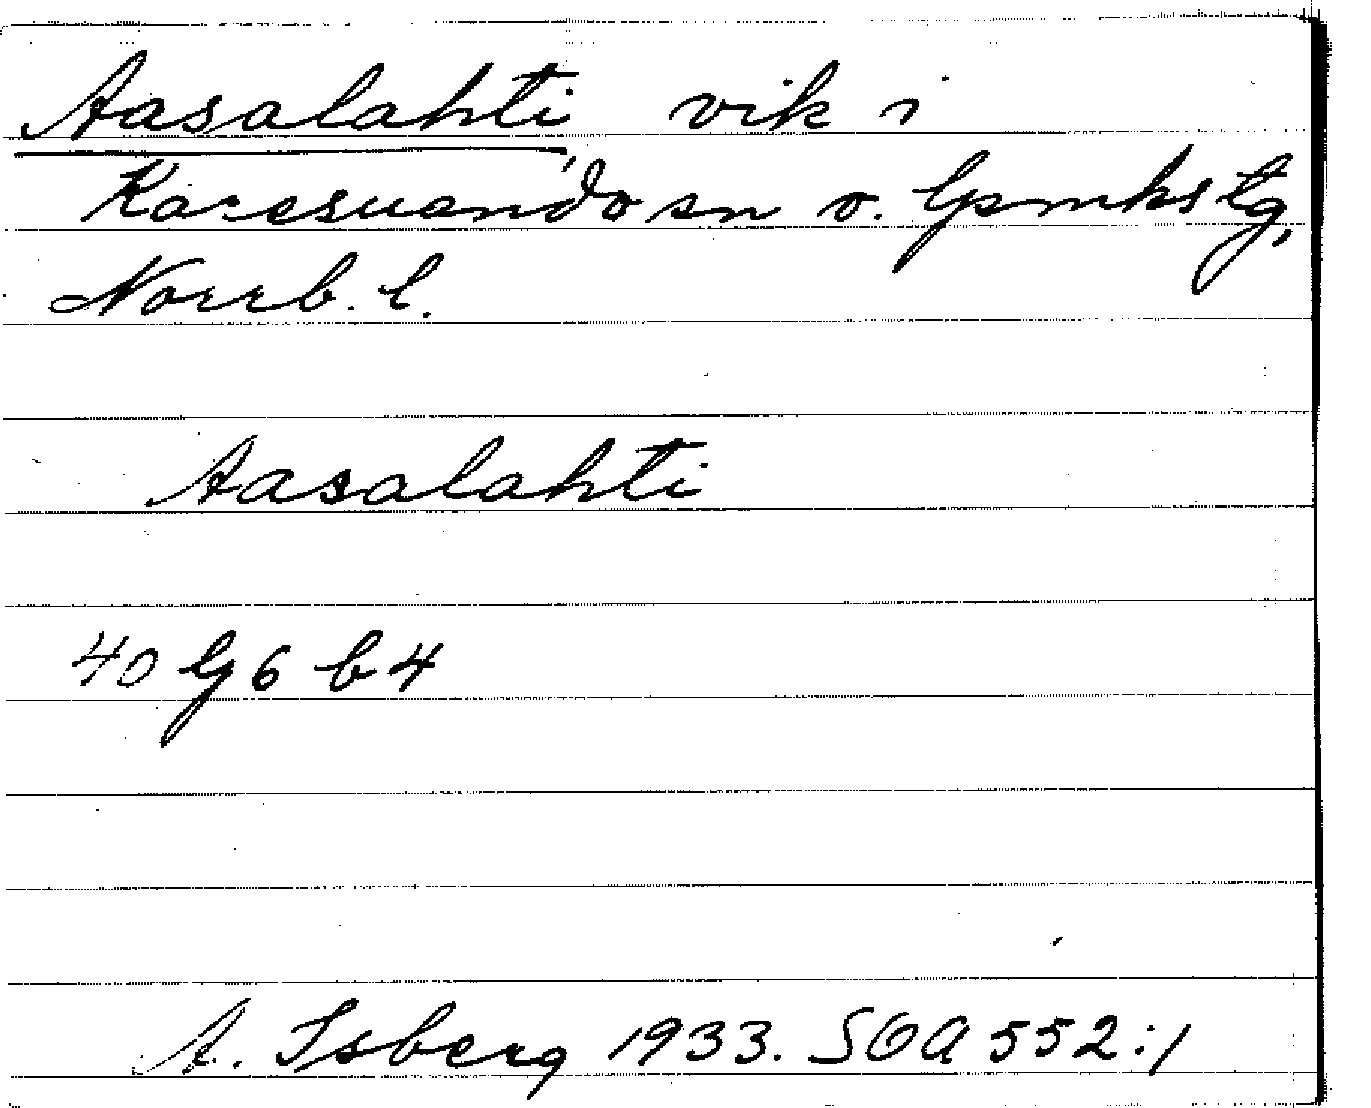 Aasalahti, vik i
Karesuando sn o. lpmks tg,
Norrb. l.
Aasalahti
40 g 6 b 4
A. Isberg 1933. SOA 552:1